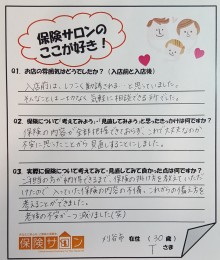 保険サロンの
ここが好き！
Q1. お店の雰囲気はどうでしたか？（入店前と入店後）
入店前はしつこく勧誘される と思っていました。
そんなことは一切なく 気軽に相談できる所でした。
Q2. 保険について「考えてみよう」・「見直してみよう」と思ったきっかけは何ですか？
保険の内容が全部把握できておらず、これで大丈夫なのか
不安に思ったことから 見直しすることにしました。
Q3. 実際に保険について考えてみて・見直してみて良かった点は何ですか？
ご担当の方が納得できるまで、保険の掛け方を教えていただ
けたので 入っていた保険の内容の不備、これからの備え方を
考えることができました。
老後の不安が一つ減りました(笑)
保険サロン
刈谷市 在住 ( 30 歳)
T さま